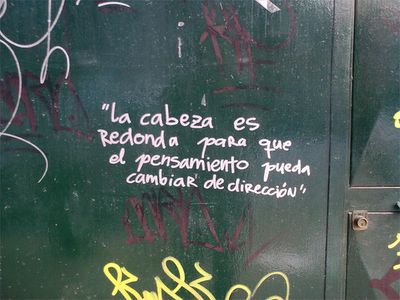 "La cabeza es
Redonda para que
el pensamiento pueda
cambiar de dirección"